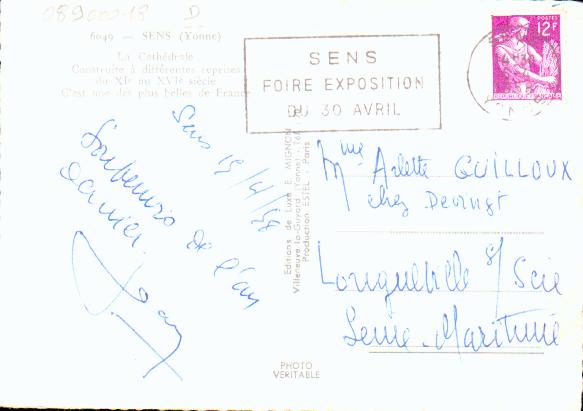 089000-18 D
6049 — SENS (Yonne)
La Cathédrale
Construite à différentes reprises
du XIe au XVIe siècle
C'est une des plus belles de France
SENS
FOIRE EXPOSITION
DU 30 AVRIL
POSTES
12F
REPUBLIQUE FRANÇAISE
Sens 19/4/58
Souvenirs de l'an
dernier.
Editions de Luxe E. MIGNON
Villeneuve-la-Guyard (Yonne) - Tél.
Production ESTEL - Paris
Mme Arlette GUILLOUX
chez
Longueville s/ Scie
Seine-Maritime
PHOTO
VERITABLE